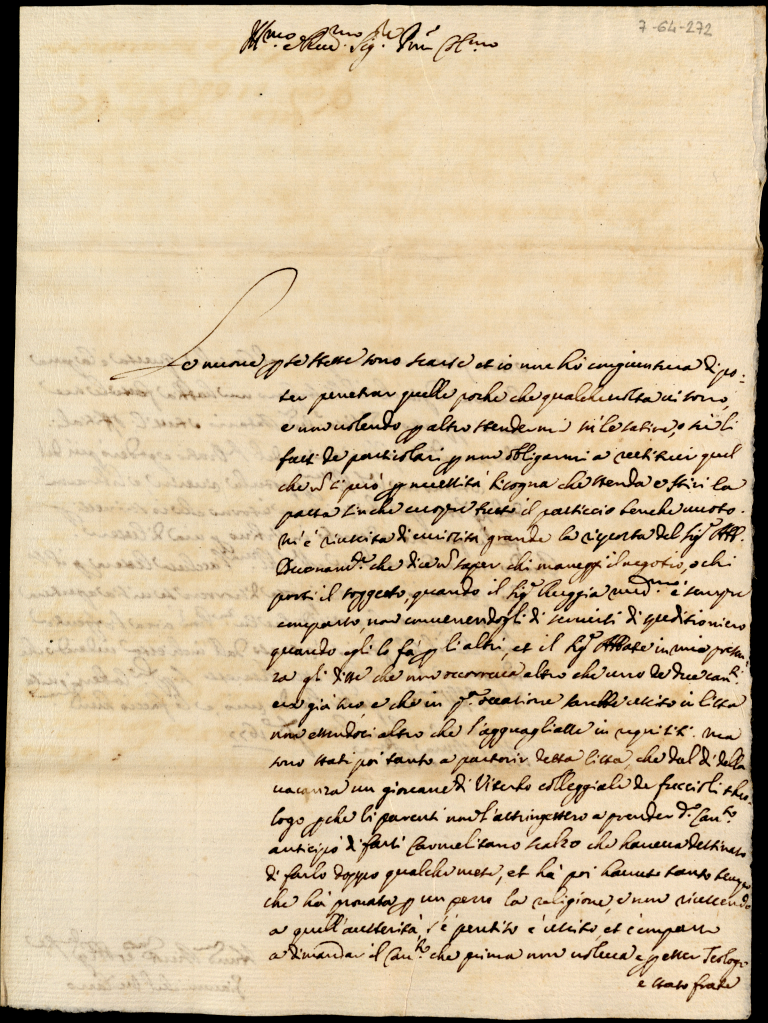 7-64-272
Ill.mo e Rev.mo Sig.re P.ron Col.mo
Le nuove p se stesse sono scarse et io non hò congiuntura di po=
ter penetrar quelle poche che qualche volta ci sono,
e non volendo p altro stendermi sù le sative, o sù li
fatti de particolari p non obligarmi a
che però p necessità bisogna che stenda e stiri la
pasta sin che cuopri tutto il pasticcio benche vuoto.
M'è riuscita di curiosità grande la risposta del Sig.r Abb.
che dice saper chi maneggi il negotio, o chi
porti il soggetto, quando il Sig.r Ruggia med.mo è sempre
comparso, non convenendogli di servirsi di speditioniero
quando egli lo fà p li altri, et il Sig.r Abbate in mia presen=
za gli disse che non occorreva altro che uno de due can.ti
era già suo, e che in q.ta occasione sarebbe uscito in lista
non essendoci altro che l'agguagliasse in requisiti. ma
sono stati poi tanto a partorir detta lista, che dal dì della
vacanza un giovane di Viterbo colleggiale de theo=
logo pche li parenti non l'astringessero a prender d.o Can.to
anticipò di farsi Carmelitano scalzo che haveva destinato
di farlo doppo qualche mese, et hà poi havuto tanto tempo
che hà provata p un pezzo la religione, e non riuscendo
a quell'austerità s'è pentito è uscito, et è comparso
a dimandar il Can.to che prima non voleva e p esser Teologo
e stato frate